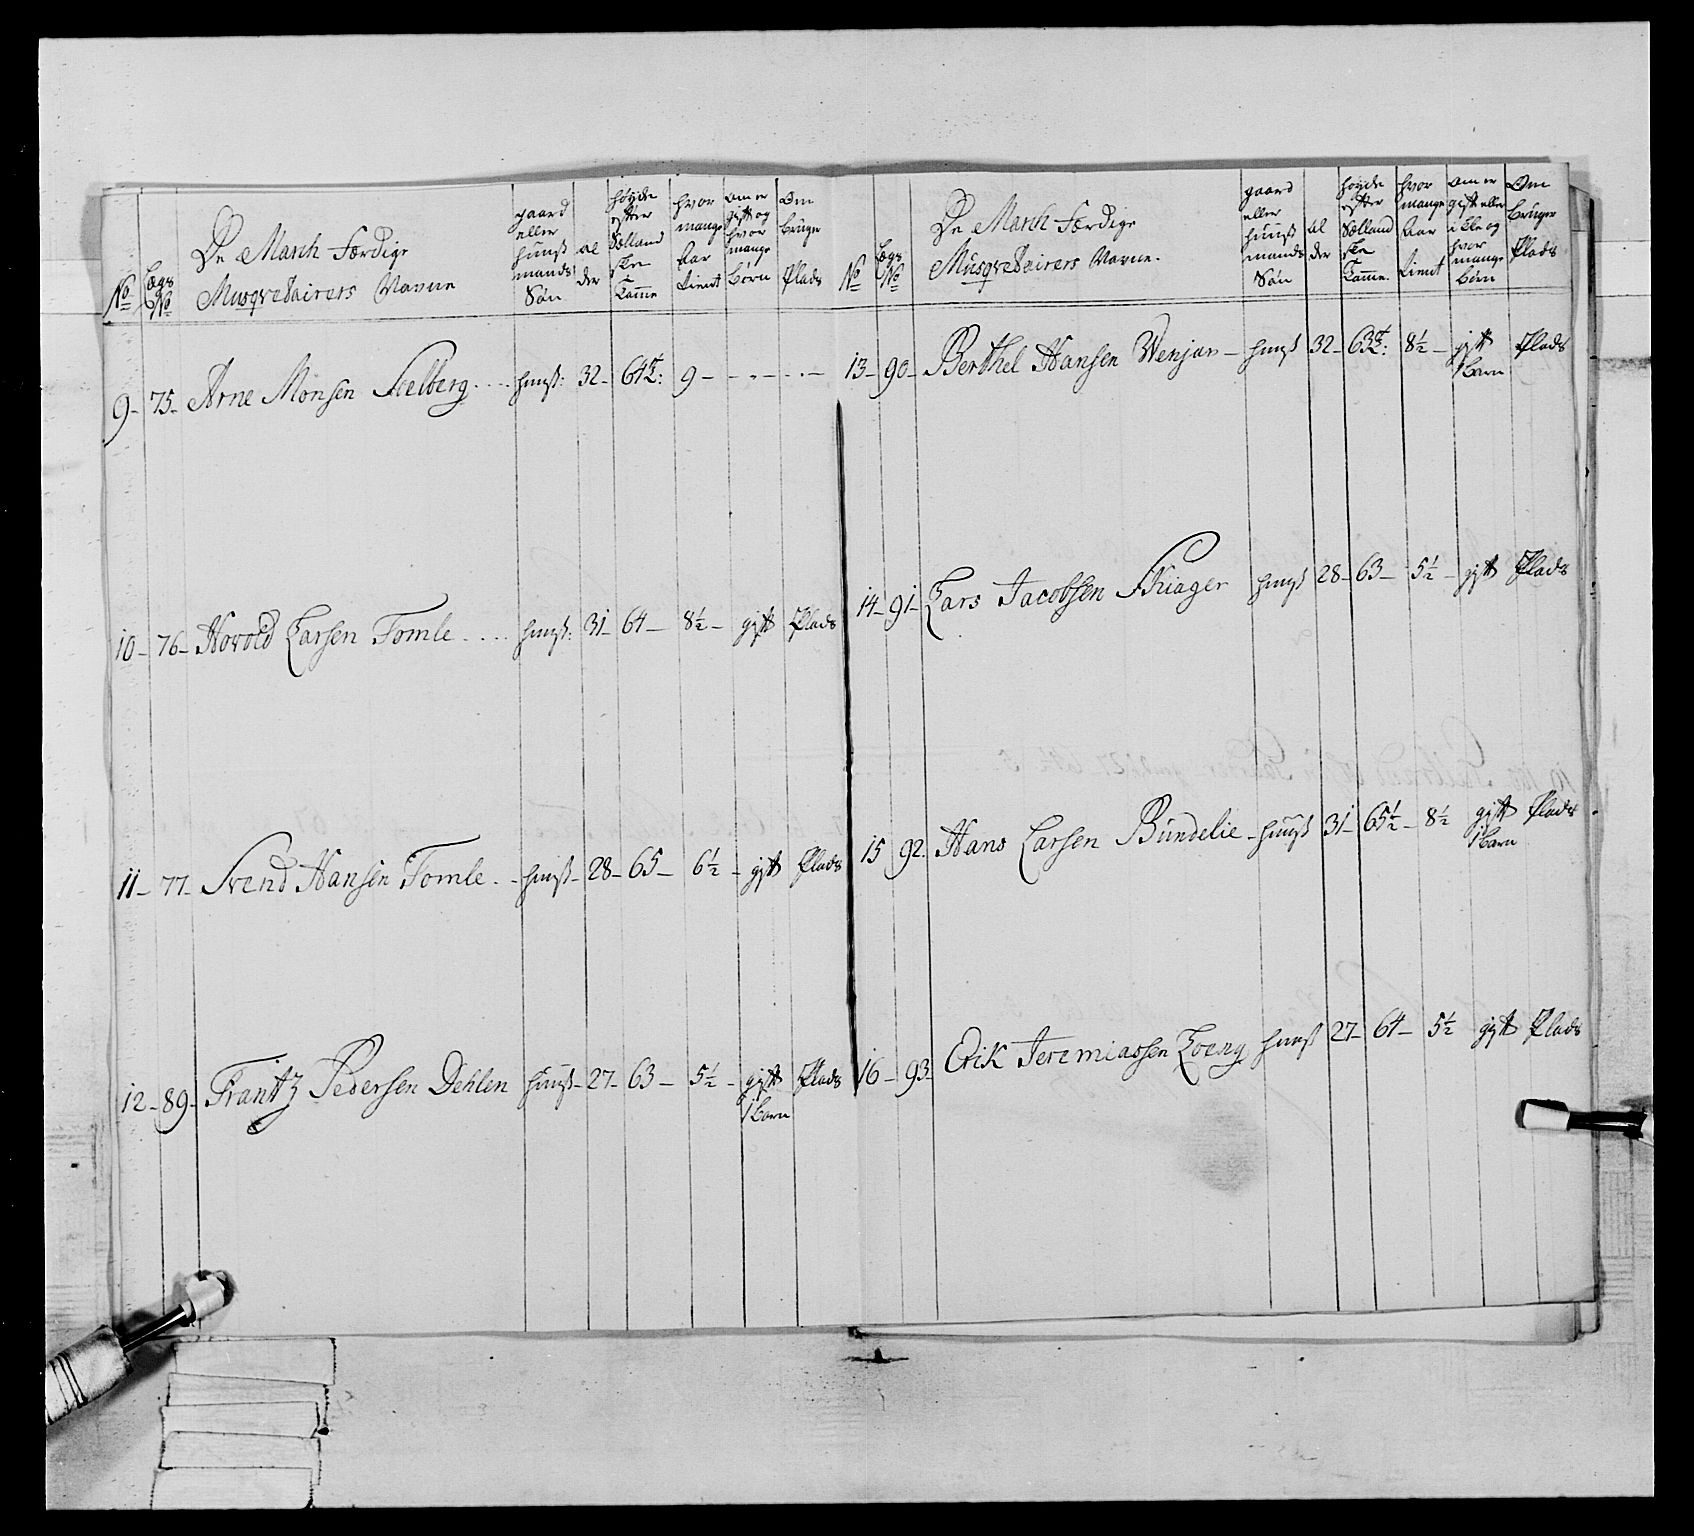 No
Lægs No
De March Færdige
Musqvetairers Navne
gaard eller huus mands Søn
al der
høyde efter Sælland ske Tomme
hvor mange Aar tient
om er gift og hvor mange børn
Om bruger Plads
9 - 75 - Arne Monsen Selberg .... huus: 32 - 64 : 9 - - - - - -
10 - 76 - Hovold Larsen Tomle .... huus: 31 - 64 - 8½ - gift Plads
11 - 77 - Svend Hansen Tomle . - huus - 28 - 65 - 6½ - gift Plads
12 - 89 - Frantz Pedersen Dehlen huus - 27 - 63 - 5½ - gift Plads
1 barn
No
Lægs No
De March Færdige
Musqvetairers Navne.
gaard eller huus mands Søn
al der
høyde efter Sælland ske Tomme.
hvor mange Aar tient
om er gift eller ikke og hvor mange børn
Om bruger Plads
13 - 90 - Berthel Hansen Wenjan - huus 32 - 63 : 8½ - gift Plads
1 barn
14 - 91 - Lars Jacobsen Skiager huus 28 - 63 - 5½ - gift Plads
15 92. Hans Larsen Bundelie - huus 31 - 65½ - 8½ gift Plads
1 barn
16 - 93 - Erik Jeremiassen Loeng huus 27 - 64 - 5½ gift Plads